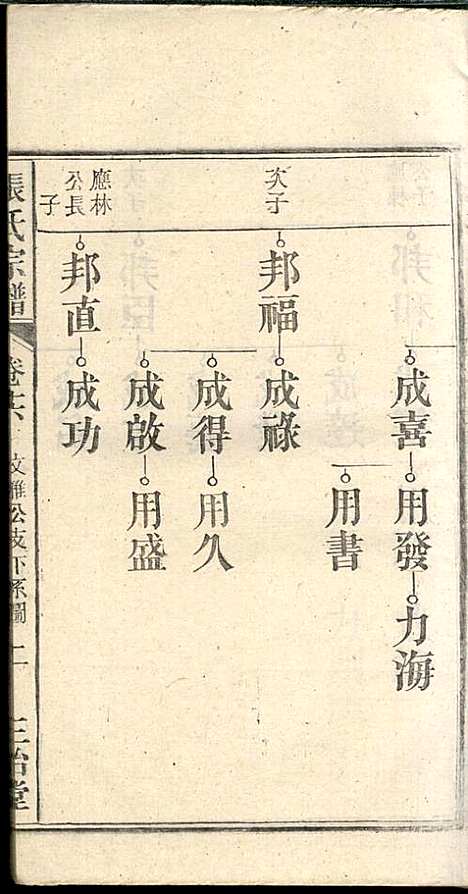 成喜 用發 力海
用書
次子 邦福 成祿
成得 用久
成啟 用盛
應林
公長
子
邦直 成功
張氏宗譜 卷 文雅公支下系圖 二 三治堂